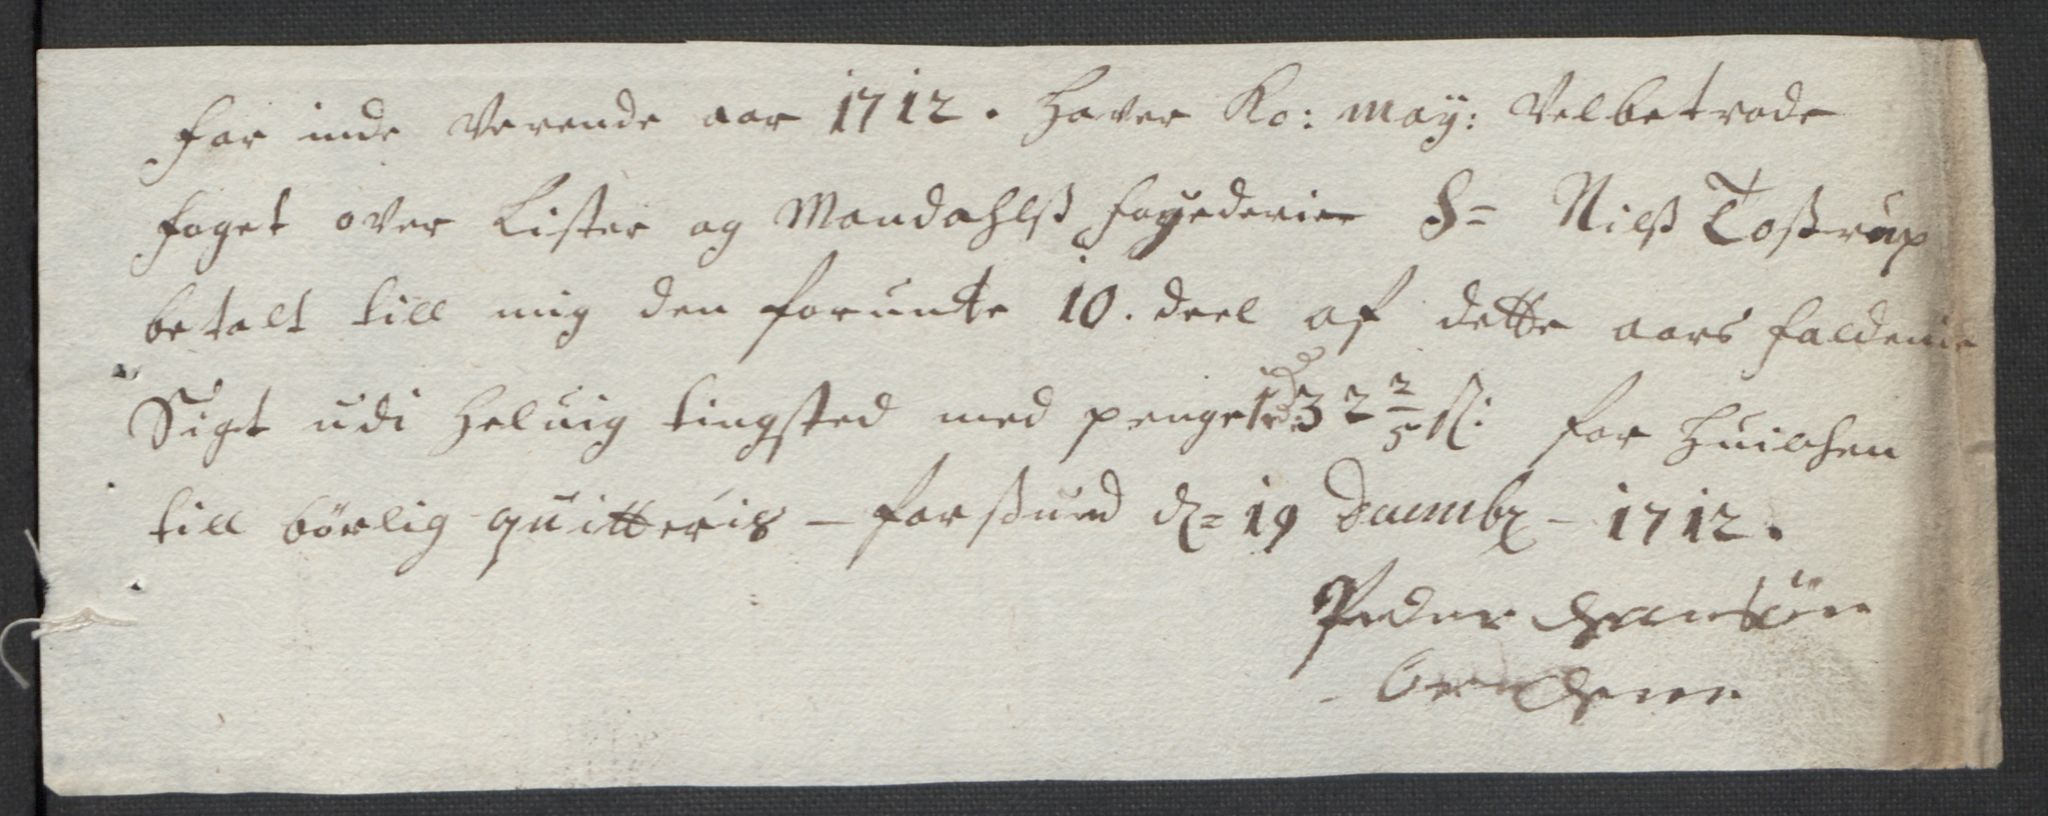 for inde Verende aar 1712. Haver Ko: May: Velbetrode
foget over Lister og Mandahlß fogederier Sr= Nilß Toßtrup
betalt till mig den forundte 10. deel af dette aars faldene
Sigt udi Heluig tingsted med penge 1 rd 32 2/5 sl: for huilchen
till börlig quitteris – farßund dn= 19 Decembr – 1712.
Peder Hansön